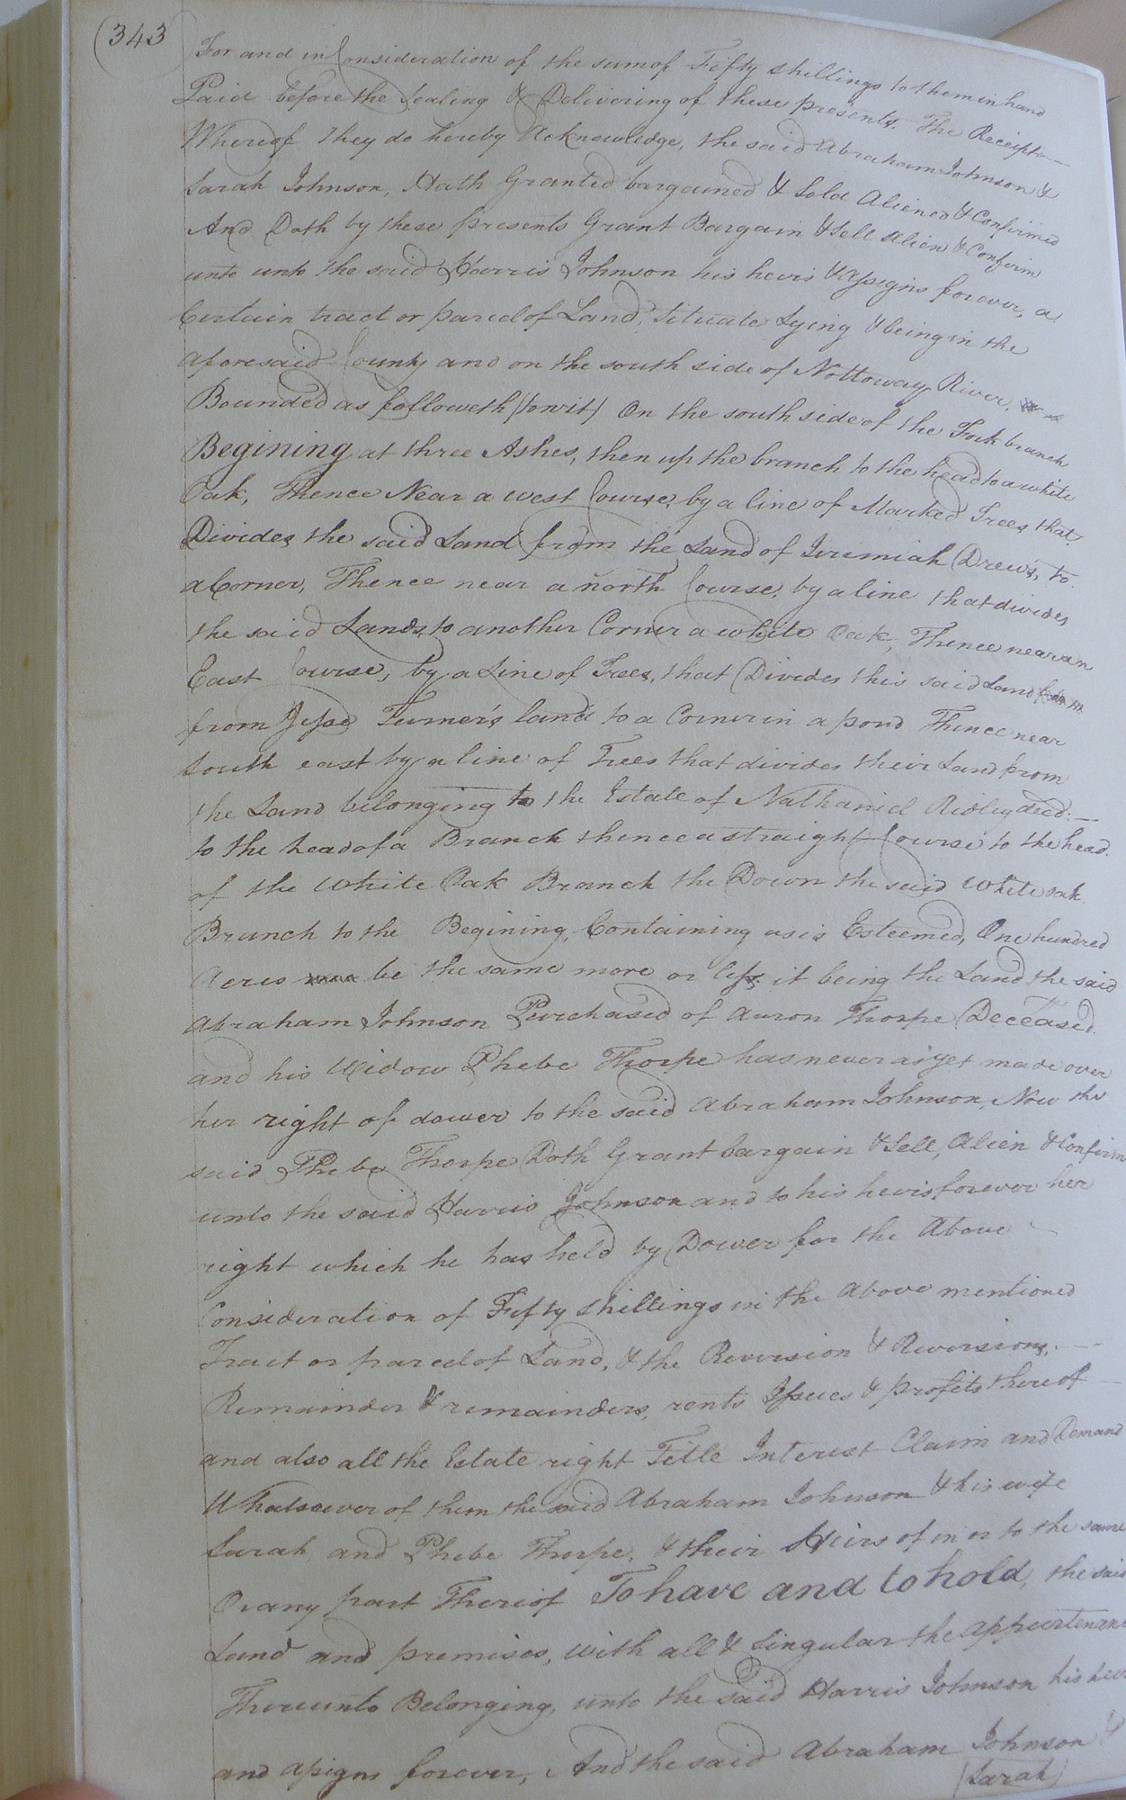 343
For and in Consideration of the sum of Fifty shillings to them in hand
Paid before the Sealing & Delivering of these presents. The Receipt
Whereof they do hereby Acknowledge, the said Abraham Johnson &
Sarah Johnson, Hath Granted bargained & Sold Aliened & Confirmed
And Doth by these presents Grant Bargain & Sell Alien & Confirm
unto unto the said Harris Johnson his heirs & Assigns forever, a
Certain tract or parcel of Land, Situate Lying & being in the
aforesaid County and on the south side of Nottoway River,
Bounded as followeth (towit) On the south side of the Fork branch
Begining at three Ashes, then up the branch to the head to a white
Oak, Thence Near a west Course, by a line of Marked Trees, that
Divides the said Land from the Land of Jeremiah Drews, to
a Corner, Thence near a north Course, by a line that divides
the said Lands, to another Corner a white Oak, Thence near an
East Course, by a Line of Trees, that Divides this said Land
from Jesse Turner's land to a Corner in a pond Thence near
South east by a line of Trees that divides their Land from
the Land belonging to the Estate of Nathaniel Ridley decd.
to the head of a Branch thence a straight Course to the head
of the White Oak Branch the Down the said White oak
Branch to the Begining, Containing as is Esteemed, One hundred
Acres be the same more or less. it being the Land the said
Abraham Johnson Purchased of Aaron Thorpe Deceased
and his Widow Phebe Thorpe has never as yet made over
her right of dower to the said Abraham Johnson, Now the
said Phebe Thorpe Doth Grant bargain & Sell, Alien & Confirm
unto the said Harris Johnson and to his heirs forever her
right which he has held by Dower for the Above
Consideration of Fifty shillings in the above mentioned
Tract or parcel of Land, & the Reversion & Reversions,
Remainder & remainders, rents Issues & profits thereof
and also all the Estate right Title Interest Claim and Demand
Whatsoever of them the said Abraham Johnson & his wife
Sarah and Phebe Thorpe, & their Heirs of in or to the same
Or any part Thereof To have and to hold, the said
Land and premises, with all & Singular the appurtenan
Thereunto Belonging, unto the said Harris Johnson his heir
and assigns forever, And the said Abraham Johnson &
(Sarah)